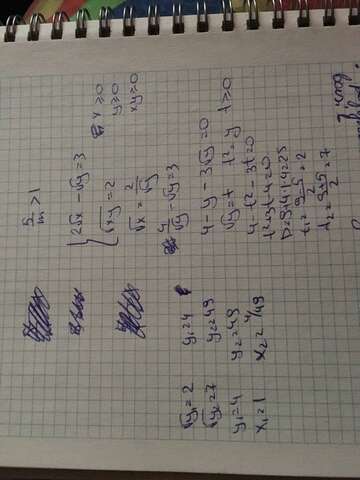 5/m > 1
{ 2√x - √y = 3
√xy = 2
x ≥ 0
y ≥ 0
xy ≥ 0
√x = 2/√y
4/√y - √y = 3
4 - y - 3√y = 0
√y = t t² = y t > 0
4 - t² - 3t = 0
t² + 3t - 4 = 0
t₂ = (9+5)/2 = 7
√y₁ = 2 y₁ = 4
√y₂ = 7 y₂ = 49
y₁ = 4 y₂ = 49
x₁ = 1 x₂ = 4/49